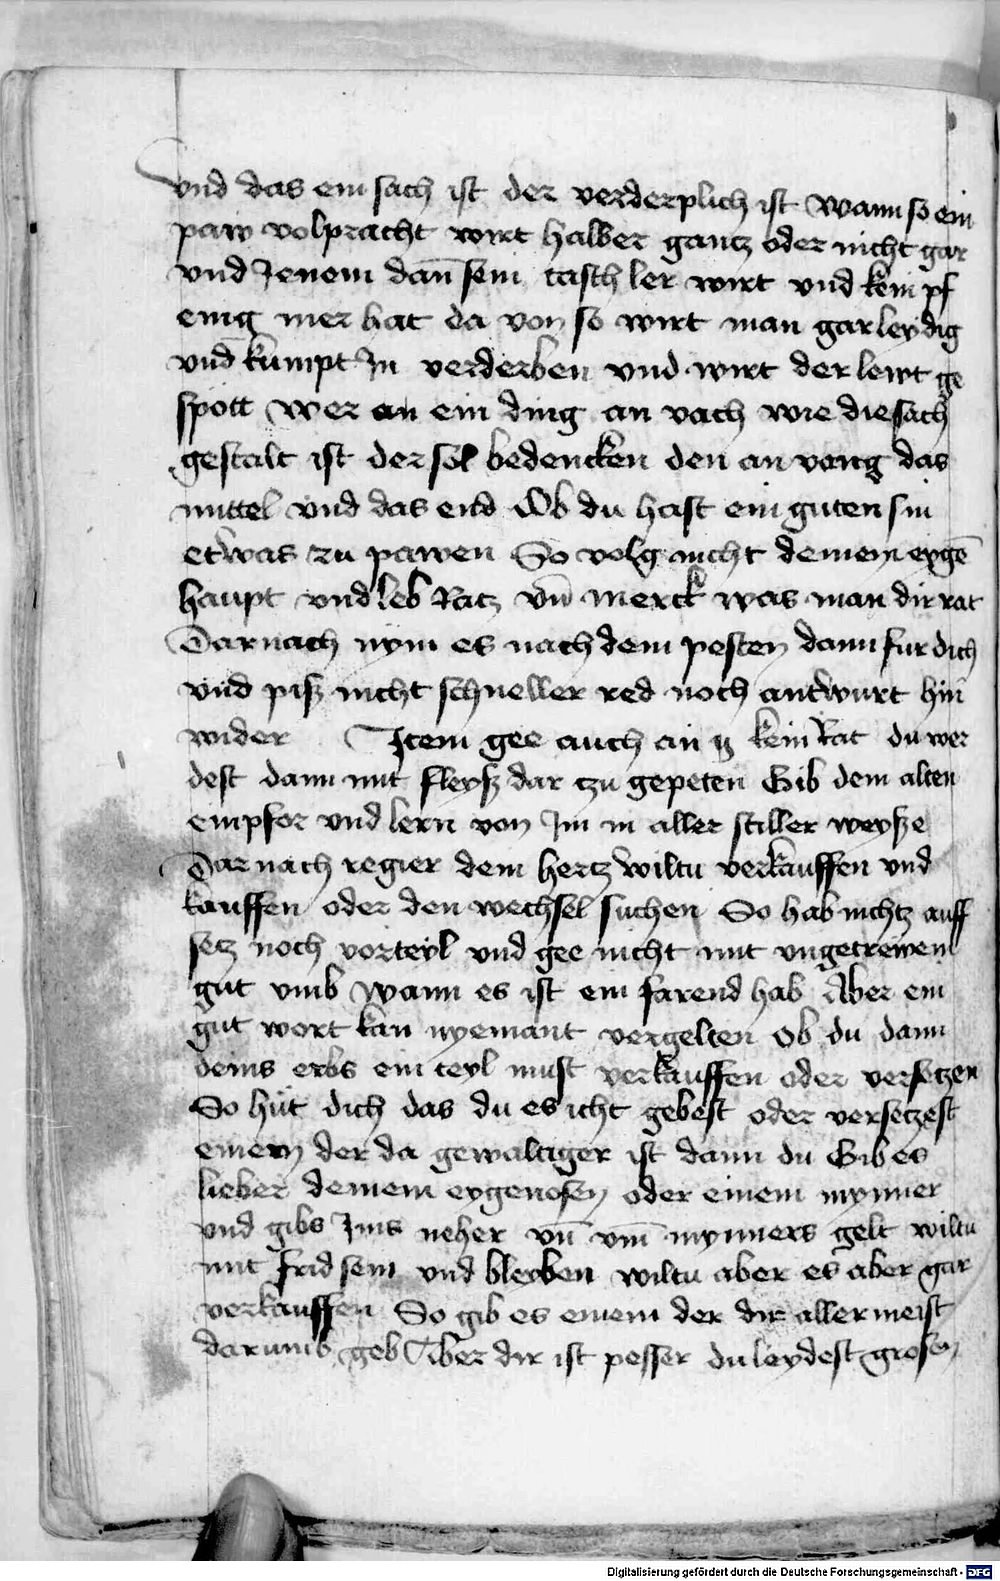 vnd das ein sach ist der verderplich ist Wann so ein
paw volpracht wirt halber gantz oder nicht gar
vnd Jenem dañ sein tasch ler wirt vnd kein pf
enig mer hat da von so wirt man gar leydig
vnd kumpt Jn verderben vnd wirt der lewt ge
spött Wer an ein ding an vach wie die sach
gestalt ist der sol bedencken den an vang das
mittel vnd das end Ob du hast ein guten sin
etwas zu pawen So volg nicht deinem eygē
haupt vnd leb Ratz vn̄ merck was man dir rat
Darnach nym es nach dem pesten dann fur dich
vnd piß nicht schneller red noch antwurt hin
wider Item gee auch an kein Rat du wer
dest dann mit fleysz dar tzu gepeten Gib dem alten
empfor vnd lern von Jm in aller stiller weysze
Dar nach regier dein hertz Wiltu verkauffen vnd
kauffen oder den wechsel suchen So hab nichtz auff
setz noch vorteyl vnd gee nicht mit vngetrewem
gut vmb Wann es ist ein farend hab Aber ein
gut wort kan nyemant vergelten Ob du dann
deins erbs ein teyl must verkauffen oder versetzen
So hüt dich das du es icht gebest oder versetzest
einem der da gewaltiger ist dann du Gib es
lieber deinem eygenosen oder einem mynner
vnd gibs Jms neher vn̄ vm̄ mynners gelt wiltu
mit frid sein vnd bleyben wiltu aber es aber gar
verkauffen So gib es einem der dir allermeist
darumb geb Aber dir ist pesser du leydest grosen